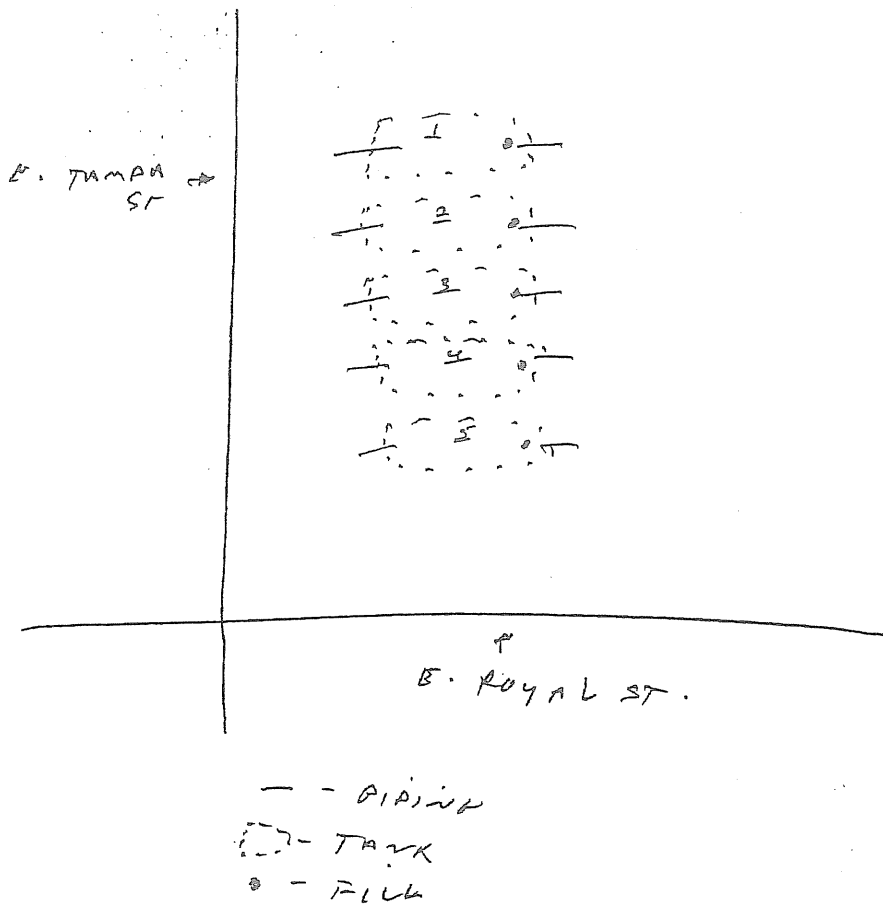 1
E. TAMPA
ST
2
3
4
5
E. ROYAL ST.
— - PIPING
- TANK
• - FILL